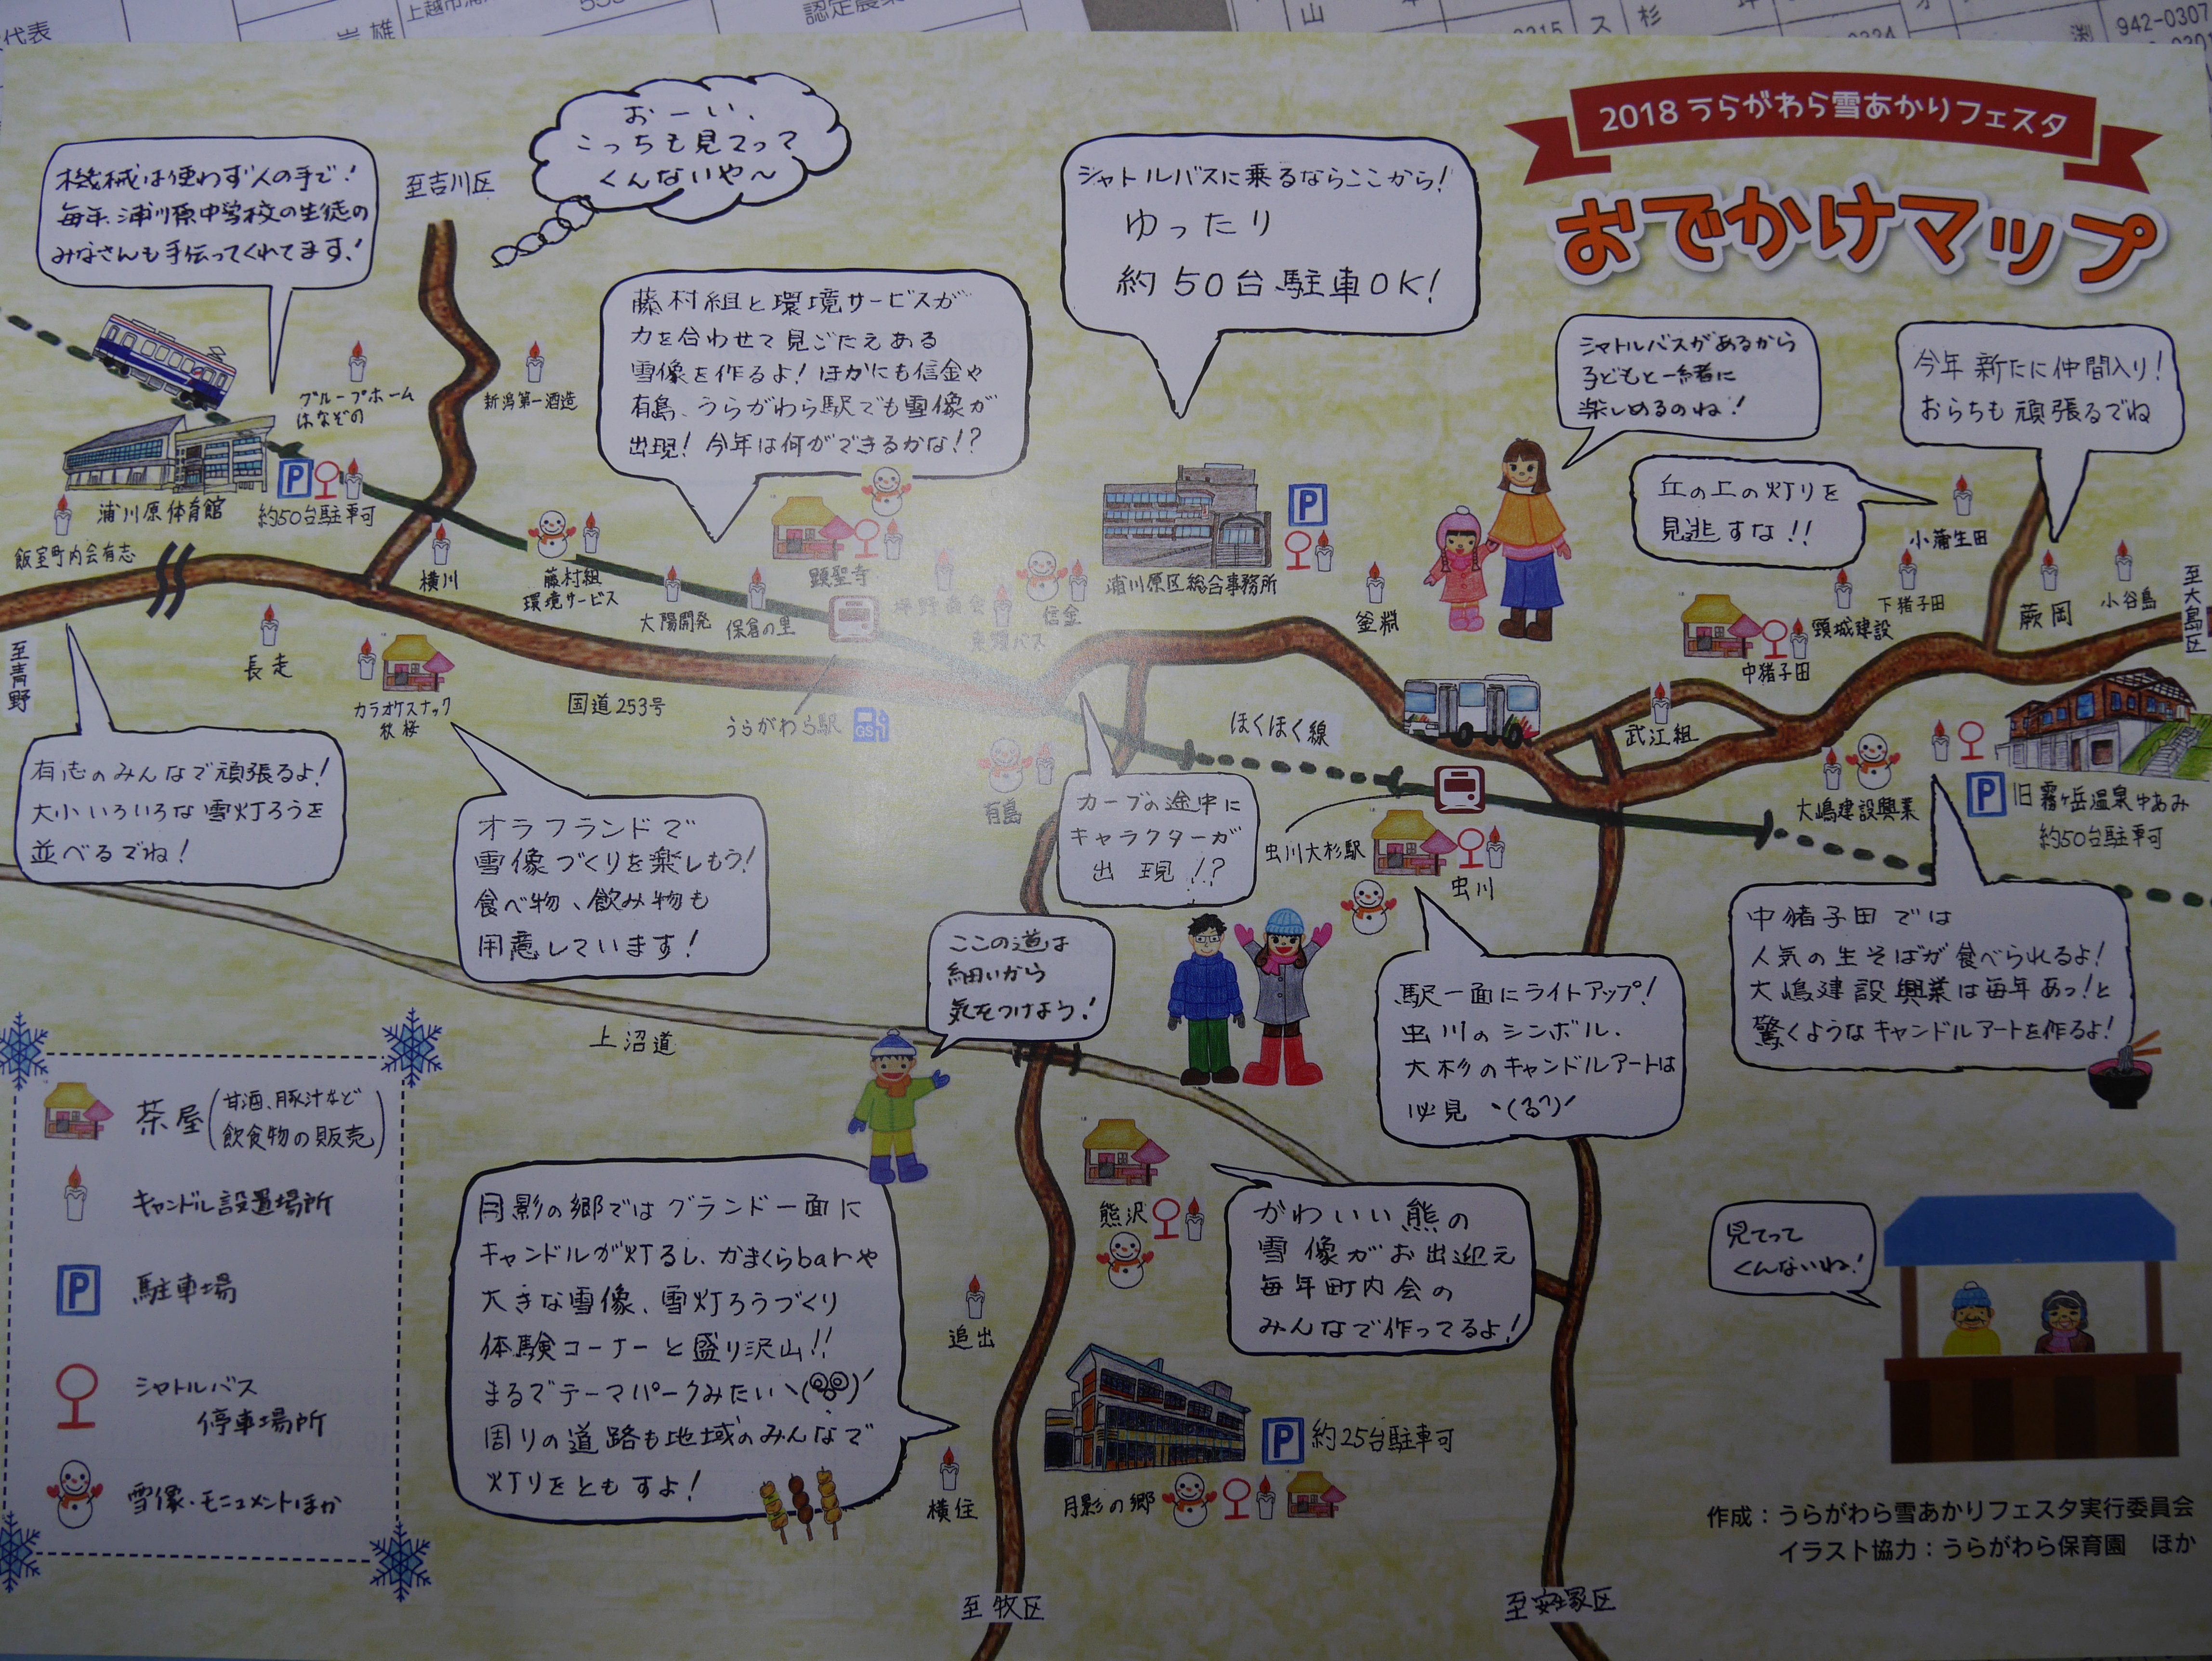 代表
上越市浦
認定農業
山
ス
杉
942-0307
2018 うらがわら雪あかりフェスタ
おでかけマップ
機械は使わず人の手で!
毎年、浦川原中学校の生徒の
みなさんも手伝ってくれてます!
至吉川区
おーい、
こっちも見てって
くんないや〜
藤村組と環境サービスが
力を合わせて見ごたえある
雪像を作るよ!ほかにも信金や
有島、うらがわら駅でも雪像が
出現!今年は何ができるかな!?
シャトルバスに乗るならここから!
ゆったり
約50台駐車OK!
シャトルバスがあるから
子どもと一緒に
楽しめるのね!
今年新たに仲間入り!
おらちも頑張るでね
丘の上の灯りを
見逃すな!!
グループホーム
はなぞの
新潟第一酒造
浦川原体育館
約50台駐車可
飯室町内会有志
横川
藤村組
環境サービス
大陽開発
保倉の里
顕聖寺
坪野商会
東頸バス
信金
浦川原区総合事務所
釜淵
小蒲生田
下猪子田
頸城建設
中猪子田
蕨岡
小谷島
至大島区
至青野
長走
カラオケスナック
秋桜
国道253号
うらがわら駅
GS
ほくほく線
武江組
有島
虫川大杉駅
虫川
大嶋建設興業
旧霧ヶ岳温泉ゆあみ
約50台駐車可
有志のみんなで頑張るよ!
大小いろいろな雪灯ろうを
並べるでね!
オラフランドで
雪像づくりを楽しもう!
食べ物、飲み物も
用意しています!
カーブの途中に
キャラクターが
出現!?
ここの道は
細いから
気をつけよう!
駅一面にライトアップ!
虫川のシンボル、
大杉のキャンドルアートは
必見ヽ(る?)ノ
中猪子田では
人気の生そばが食べられるよ!
大嶋建設興業は毎年あっ!と
驚くようなキャンドルアートを作るよ!
上沼道
茶屋(甘酒、豚汁など
飲食物の販売)
キャンドル設置場所
P 駐車場
シャトルバス
停車場所
雪像・モニュメントほか
月影の郷ではグランド一面に
キャンドルが灯るし、かまくらbarや
大きな雪像、雪灯ろうづくり
体験コーナーと盛り沢山!!
まるでテーマパークみたい
周りの道路も地域のみんなで
灯りをともすよ!
熊沢
かわいい熊の
雪像がお出迎え
毎年町内会の
みんなで作ってるよ!
追出
横住
P 約25台駐車可
月影の郷
見てって
くんないね!
至牧区
至安塚区
作成：うらがわら雪あかりフェスタ実行委員会
イラスト協力：うらがわら保育園　ほか